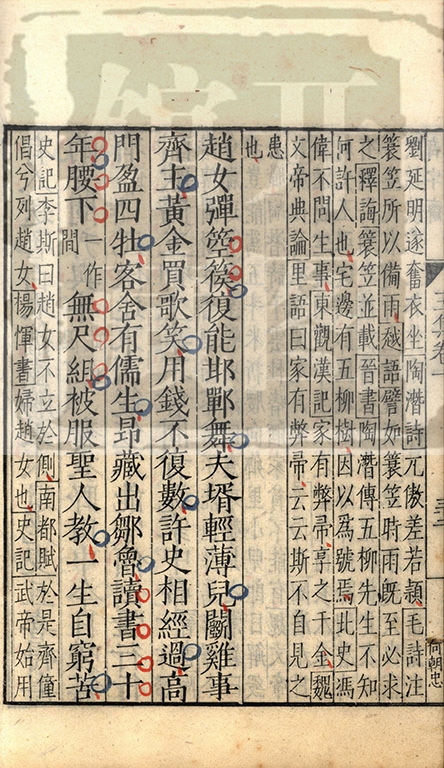 劉延明遂奮衣坐陶潛詩兀傲差若穎毛詩注
簑笠所以備雨越語譬如簑笠時雨既至必求
之釋誨簑笠並載晉書陶潛傳五柳先生不知
何許人也宅邊有五柳樹因以爲號焉此史馮
偉不問生事東觀漢記家有弊帚享之千金魏
文帝典論里語曰家有弊帚云云斯不自見之
患
也
趙女彈箜篌復能邯鄲舞夫壻輕薄兒鬭雞事
齊王黃金買歌笑用錢不復數許史相經過高
門盈四牡客舍有儒生昂藏出鄒魯讀書三十
年腰下一作間無尺組被服聖人教一生自窮苦
史記李斯曰趙女不立於側南都賦於是齊僮
唱兮列趙女楊惲書婦趙女也史記武帝始用
何朝忠